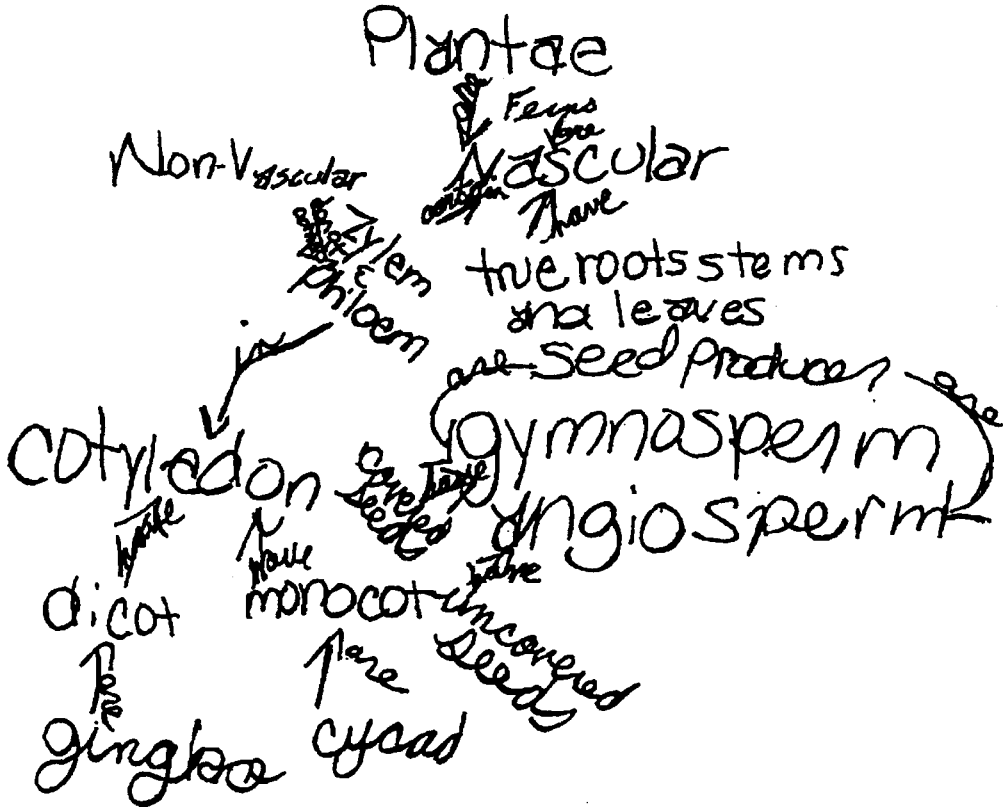 Plantae
Ferns
are
Non-Vascular
Vascular
contain
have
Xylem
&
Philoem
true roots stems
and leaves
in
are seed Producer are
gymnosperm
cotyledon
covered
seeded
have
angiosperm
have
have
have
dicot
monocot
uncovered
seeds
are
are
gingkoo
cycad